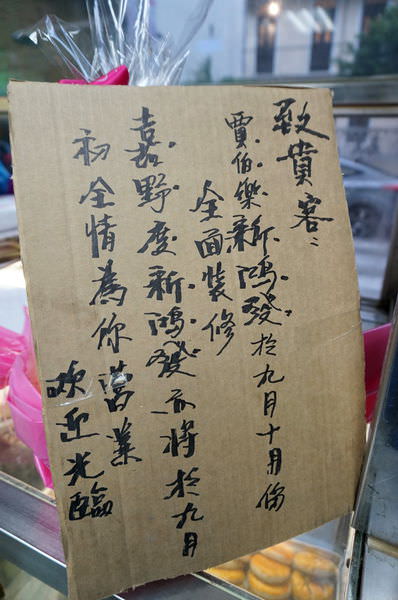 致貴客：
賈伯樂新鴻發於九月十月份
全面裝修
嘉野度新鴻發亦將於九月
初全情為你營業
歡迎光臨